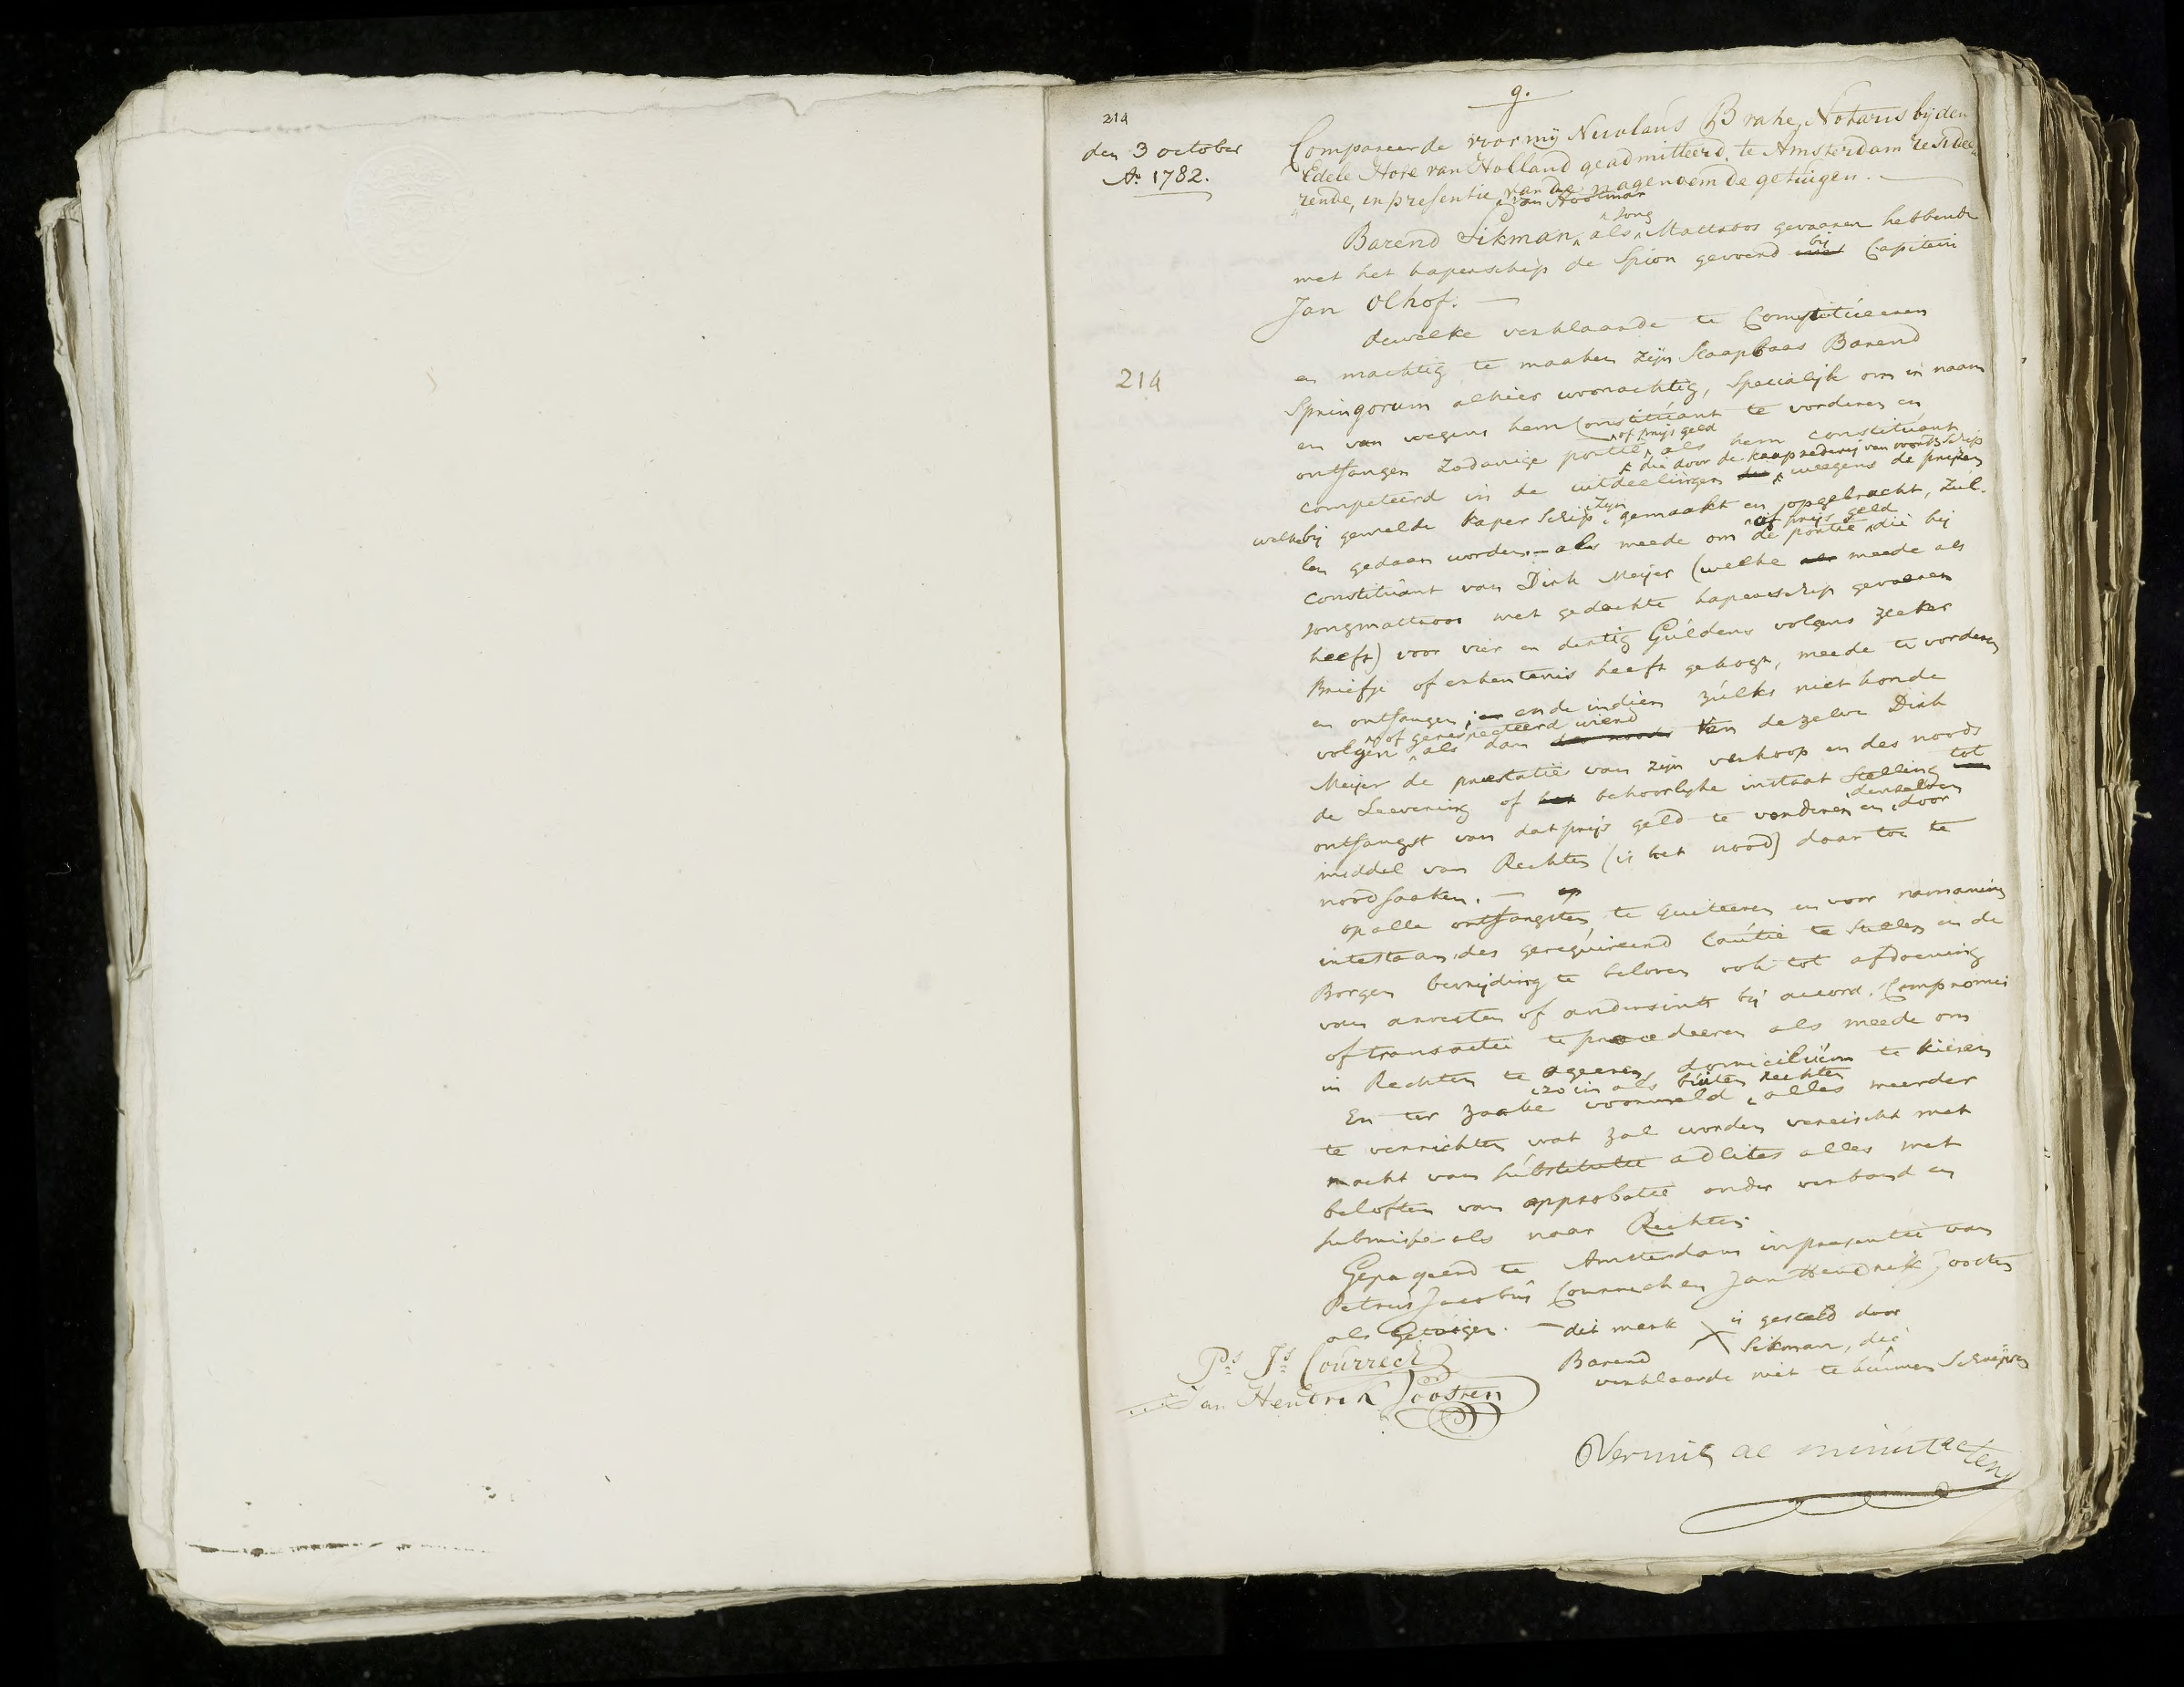 g.
214
den 3 october
Ao. 1782.
214
Compareerde voor mij Nicolaus Brahe, Notaris bij den
Edele Hove van Holland geadmitteerd, te Amsterdam residee
rende, in presentie van de nagenoemde getuigen.
van
jong
Barend Sikman, als Mattroos gevaaren hebbende
bij
met het kaperschip de Spion gevoerd met Capitein
Jan Olhof.
dewelke verklaarde te Constitúeeren
en machtig te maaken zijn Slaapbaas Barend
Springorum alhier woonachtig, specialijk om in naam
en van wegens hem Constitúant te vorderen en
of prijs geld
ontfangen zodanige portie, als hem constitúant
die door de kaaprederij van voorsz. schip
competeerd in de uitdeelingen die weegens de prijzen
zijn
welke bij gemelde kaper Schip gemaakt en opgebracht, zúl-
of prijs geld
len gedaan worden - als meede om de portie die hij
constitúant van Dirk Meijer (welke als meede als
jongmattroos met gedachte kaperschip gevaaren
heeft) voor vier en dertig Gúldens volgens zeeker
Briefje of erkentenis heeft gekogt, meede te vorderen
en ontfangen; en en de indien zúlks niet konde
of gerespecteerd wierd
volgen als dan des noods van dezelve Dirk
Meijer de praestatie van zijn verkoop en des noods
de Leevering of het behoorlijke instaat stelling tot
denzelven
ontfangst van dat prijs geld te vorderen en door
middel van Rechten (is het nood) daar toe te
noodsaaken. -
op
op alle ontfangsten te quiteeren en voor namaning
intestaan, des gerequireerd Caútie te stellen en de
Borgen bevrijding te beloven ook tot afdoening
van arresten of andersints bij accord, Compromis
of transactie te procedeeren als meede om
in Rechten te ageeren, domicilium te kiesen
zo in als búiten rechten
En ter zaake voormeld alles meerder
te verrichten wat zal worden vereischt met
macht van súbstitutie adlites alles met
beloften van approbatie onder verband en
submissie als naar Rechten
Gepasseerd te Amsterdam in presentie van
Petrus Jacobus Courrech en Jan Hendrik Joosten
als Getuigen. - dit merk X is gesteld door
Barend Sikman, die
verklaarde niet te kunnen Schrijven
Ps. Js. Courrech
Jan Hendrik Joosten